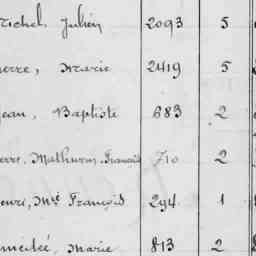 Michel Julien 2093 5
Pierre, Marie 2419 5
Jean, Baptiste 683 2
Pierre, Mathurin, François 710 2
Henri, Mie François 294 1
Marie 813 2